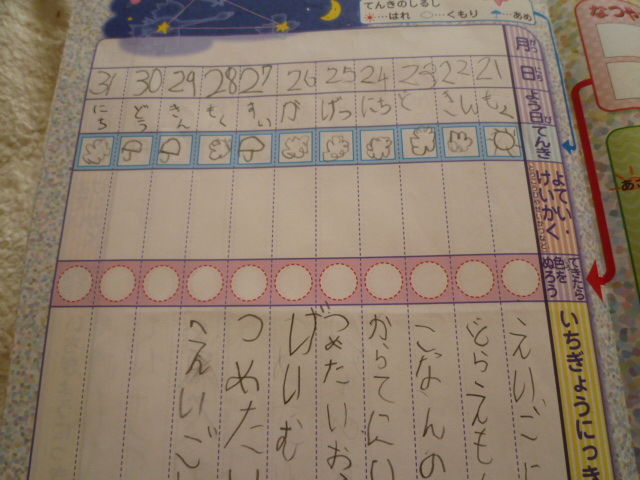 てんきのしるし
…はれ …くもり …あめ
なつや
月
日 21 22 23 24 25 26 27 28 29 30 31
よう日 もく きん ど にち げつ か すい もく きん どう にち
てんき
よてい・けいかく
できたら色をぬろう
いちぎょうにっき
えいご
どらえも
こなんの
からてに
つめたいお
げいむ
つめたい
えいご